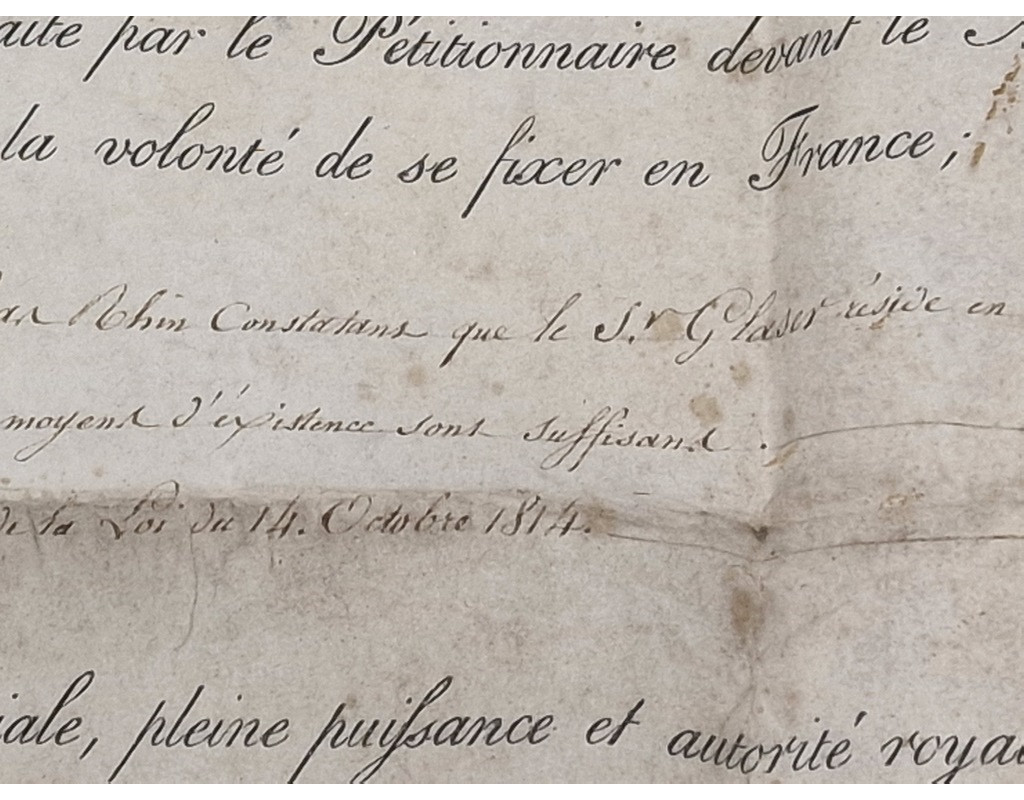 aite par le Pétitionnaire devant le
la volonté de se fixer en France;
Bas Rhin Constatant que le S.r Glaser réside en
moyens d'éxistence sont suffisans.
de la Loi du 14. Octobre 1814.
iale, pleine puissance et autorité roya